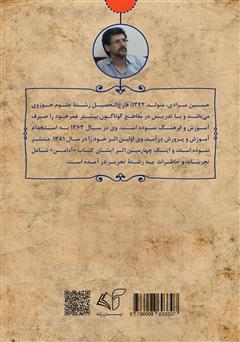 حسین مرادی، متولد ۱۳۴۲، فارغ‌التحصیل رشتهٔ علوم حوزوی
می‌باشد و با تدریس در مقاطع گوناگون بیشتر عمر خود را صرف
آموزش و فرهنگ نموده است. وی در سال ۱۳۶۳ به استخدام
آموزش و پرورش درآمد. وی اولین اثر خود را در سال ۱۳۸۱ منتشر
نموده است و اینک چهارمین اثر ایشان کتاب «آدامس» شامل
تجربیات و خاطرات به رشتهٔ تحریر در آمده است.